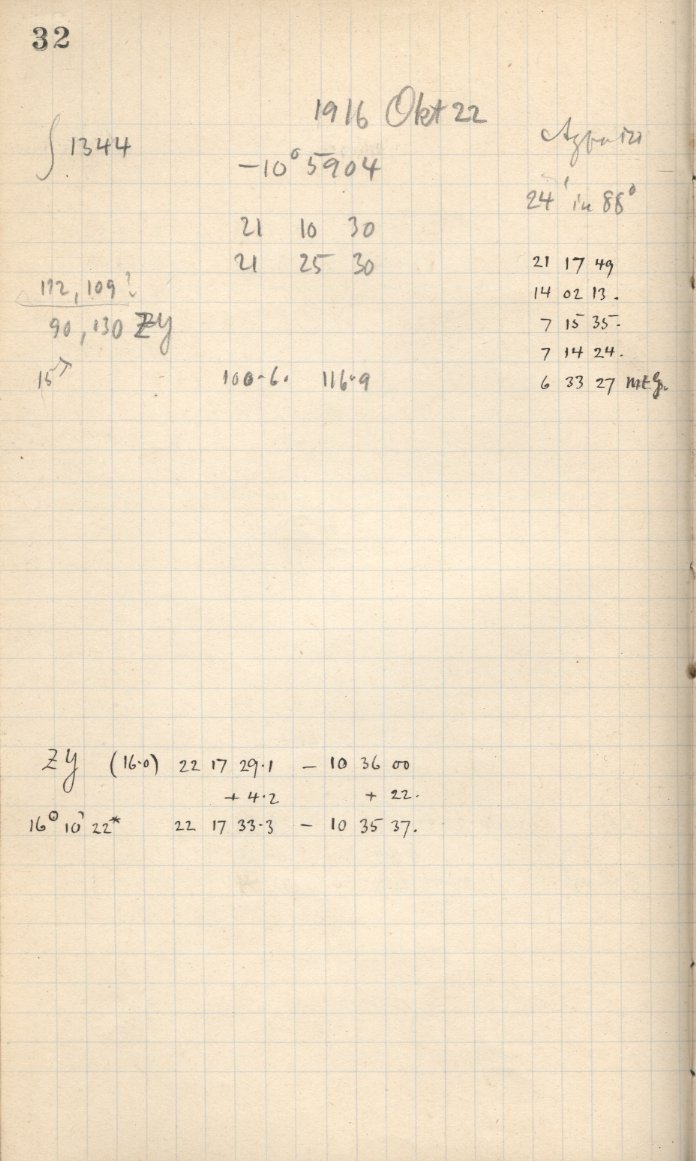 32
1916 Okt 22
1344
-10° 5904
24' in 88°
21 10 30
21 25 30
21 17 49
14 02 13.
7 15 35.
7 14 24.
6 33 27 mt Gr.
112, 109?
90, 130 ZY
100.6. 116.9
ZY (16.0) 22 17 29.1 - 10 36 00
+ 4.2 + 22.
16° 10' 22* 22 17 33.3 - 10 35 37.